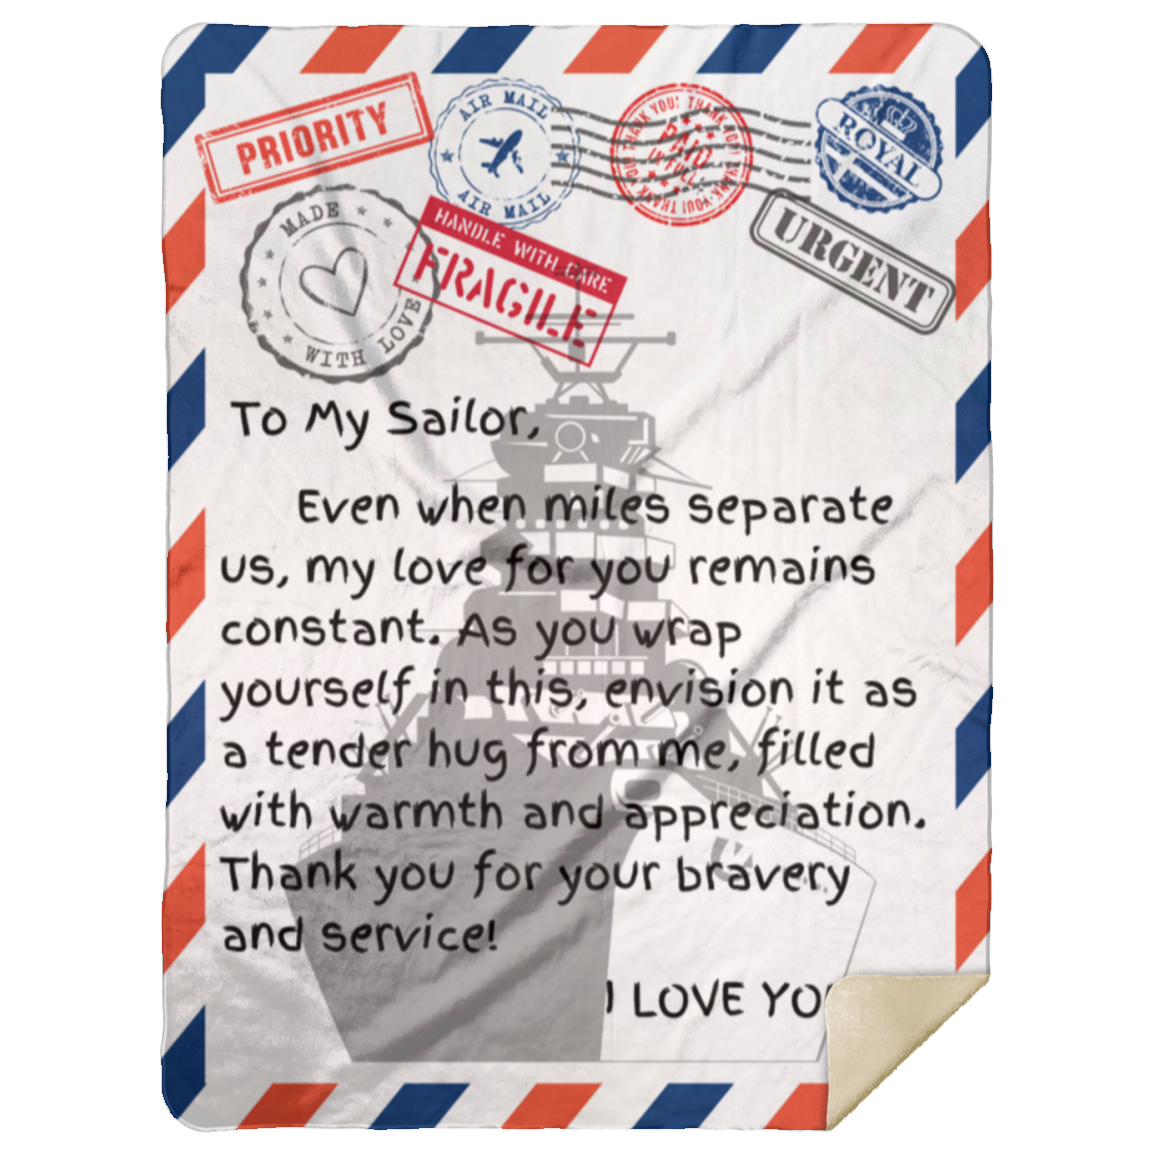 PRIORITY
AIR MAIL
AIR MAIL
THANK YOU! THANK YOU! THANK YOU! THANK YOU!
PAID
IN FULL
ROYAL
MADE
WITH LOVE
HANDLE WITH CARE
FRAGILE
URGENT
To My Sailor,
Even when miles separate
us, my love for you remains
constant. As you wrap
yourself in this, envision it as
a tender hug from me, filled
with warmth and appreciation.
Thank you for your bravery
and service!
I LOVE YO